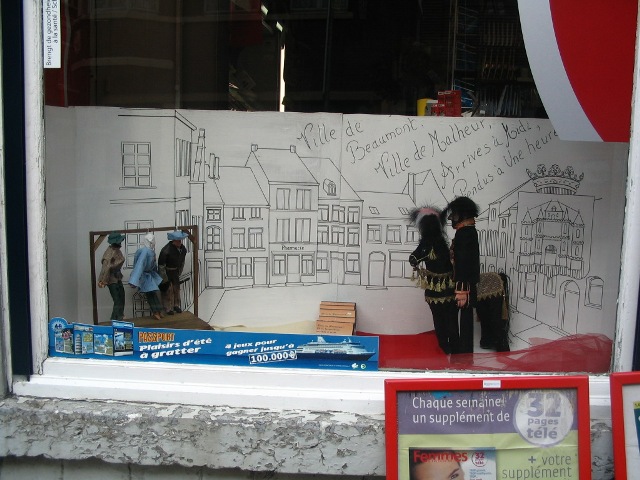 Brengt de gezondheid
à la santé / Sch
Ville de
Beaumont,
Ville de Malheur,
Arrivés à Midi,
Pendus à Une heure
Pharmacie
PASSPORT
Plaisirs d'été
à gratter
4 jeux pour
gagner jusqu'à
100.000€
Chaque semaine
un supplément de
32
pages
télé
Femmes
32
+ votre
supplément